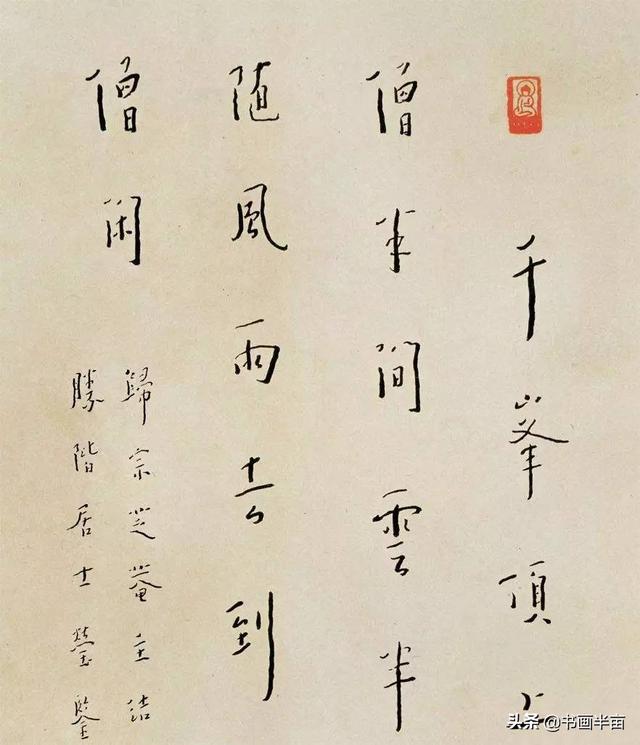 千峯頂上
僧半間雲半
随風雨去到
僧閑
歸宗芝菴主
勝階居士鑒
头条 @书画半亩